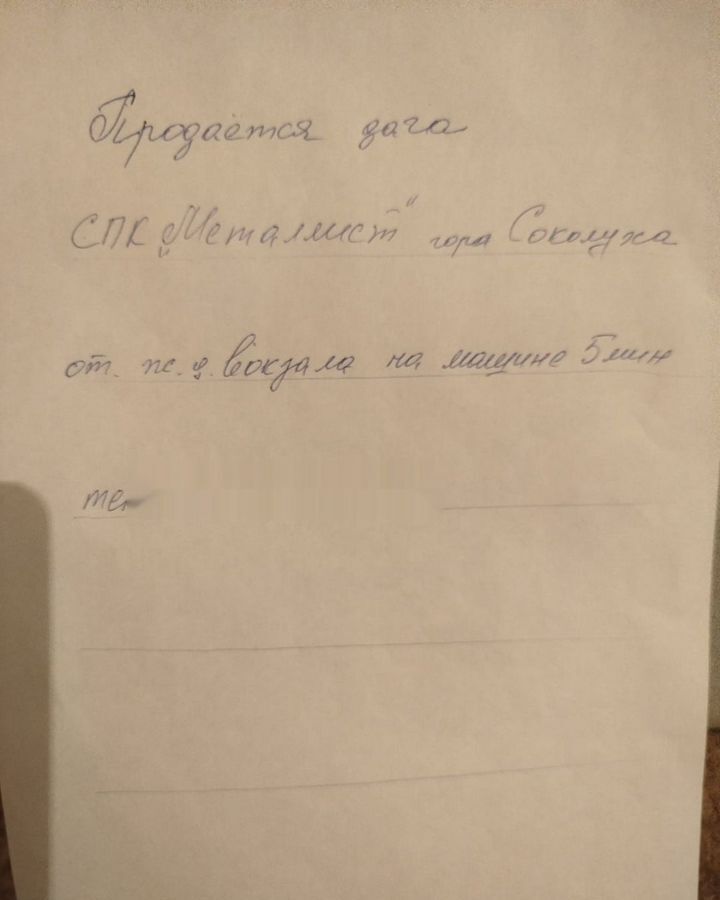 Продаётся дача
СПК „Металлист“ гора Соколуха
от. ж. д. вокзала на машине 5 мин
тел